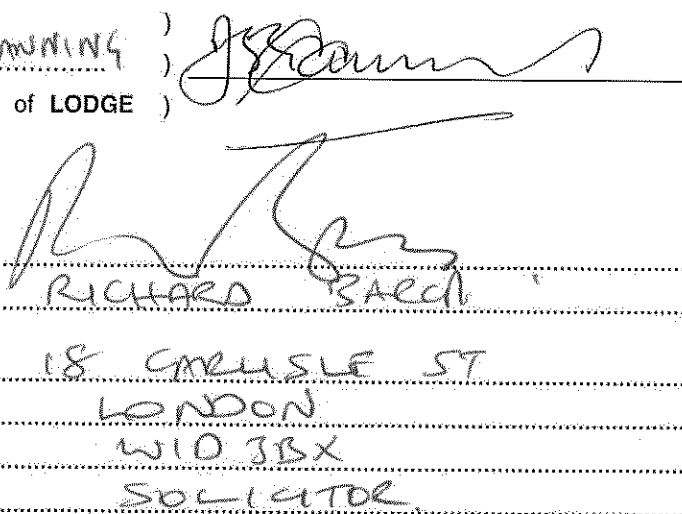 ANNING )
)
of LODGE )
RICHARD
18 CARLISLE ST
LONDON
W1D 3BX
SOLICITOR.